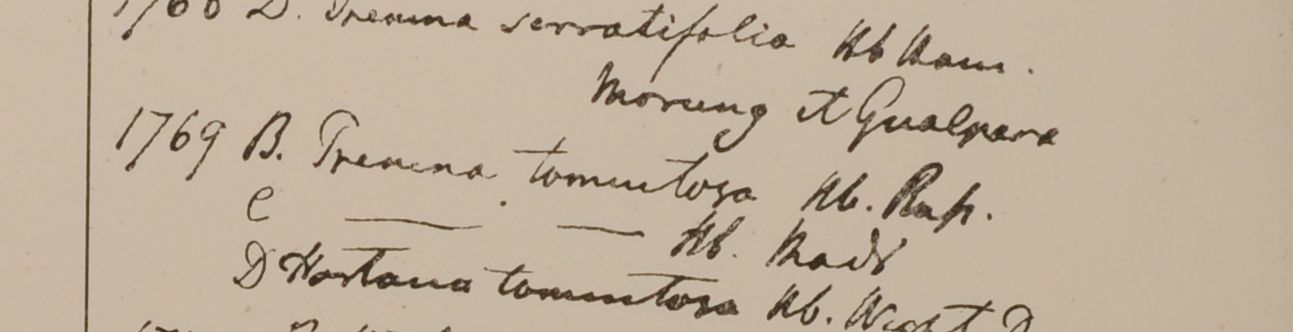 1768 D. Premna serratifolia Hb Ham.
Morung et Gualpara
1769 B. Premna tomentosa Hb. Rup.
C ——— —— Hb. Madr
D Hostana tomentosa Hb. Wight